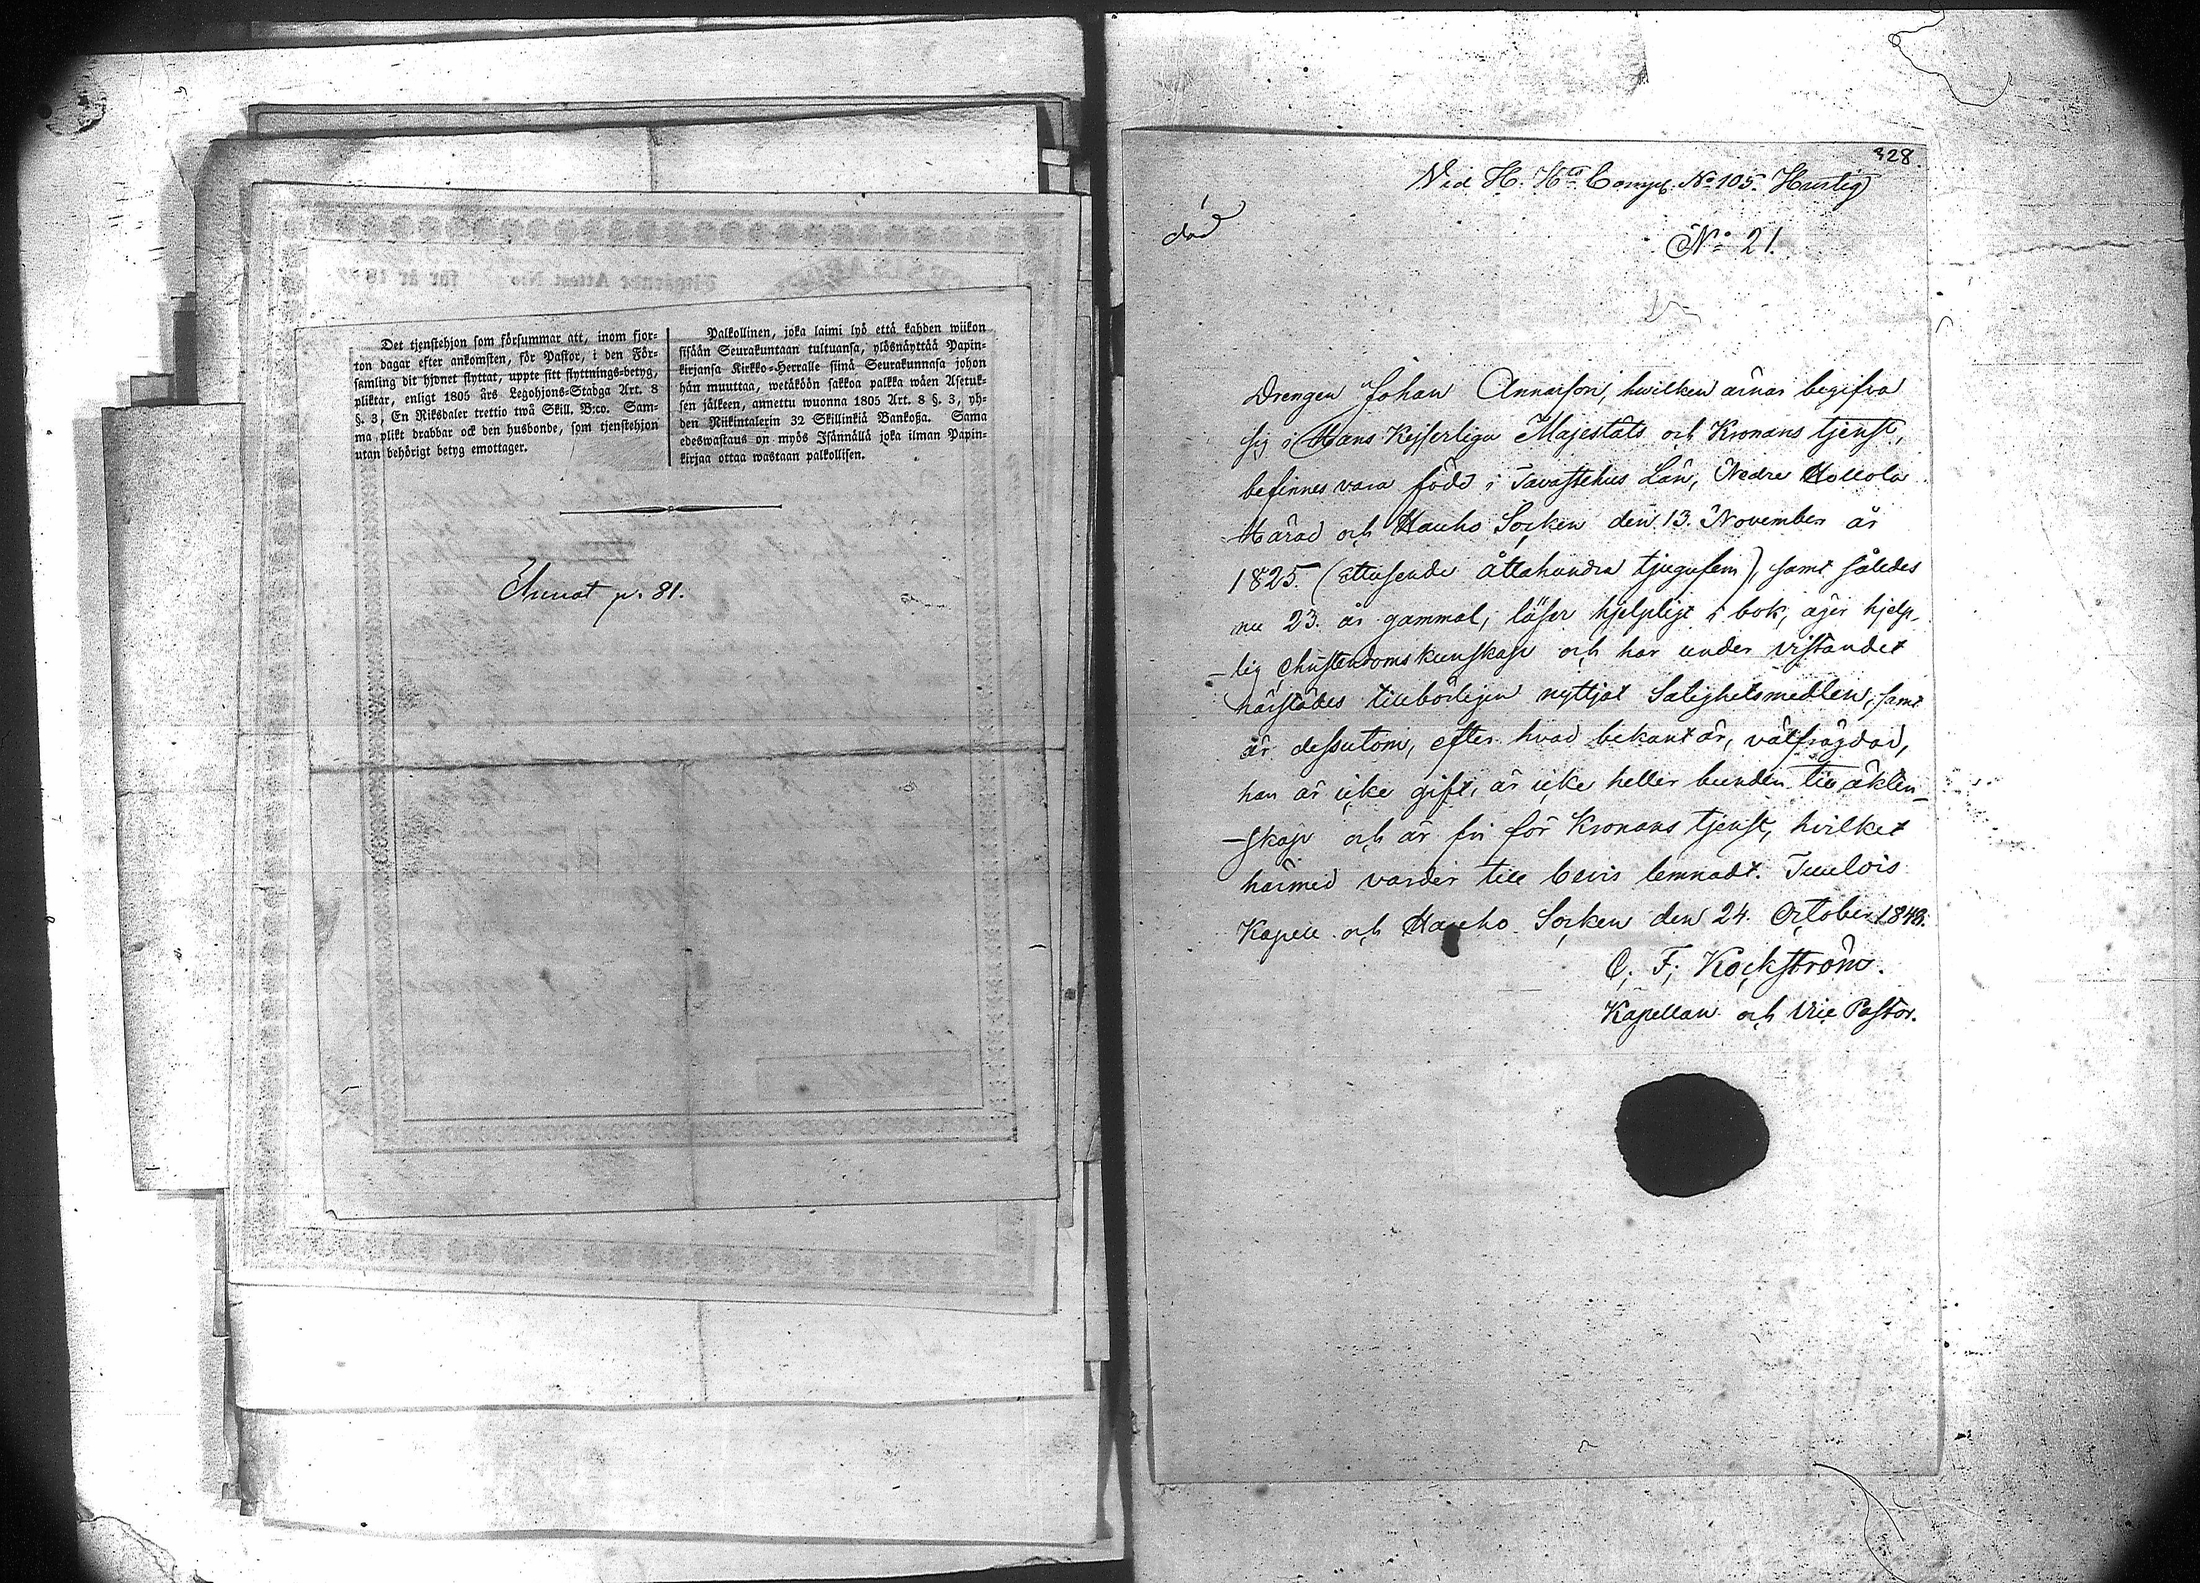 Det tjenstehjon som försummar att, inom fjor-
ton dagar efter ankomsten, för Pastor, i den För-
samling dit hjonet flyttat, uppte sitt flyttnings-betyg,
pliktar, enligt 1805 års Legohjons-Stadga Art. 8
§. 3, En Riksdaler trettio twå Skill. B:co. Sam-
ma plikt drabbar ock den husbonde, som tjenstehjon
utan behörigt betyg emottager.
Palkollinen, joka laimi lyö että kahden wiikon
sisään Seurakuntaan tultuansa, ylösnäyttää Papin-
kirjansa Kirkko-Herralle siinä Seurakunnasa johon
hän muuttaa, wetäköön sakkoa palkka wäen Asetuk-
sen jälkeen, annettu wuonna 1805 Art. 8 §. 3, yh-
den Riikintalerin 32 Skillinkiä Bankosa. Sama
edeswastaus on myös Isännällä joka ilman Papin-
kirjaa ottaa wastaan palkollisen.
p. 81.
328.
Vid H. H:s Comp. No 105. Hurtig
död
No 21.
Drengen Johan Annasson, hwilken ärnar begifva
sig i Hans Kejserliga Majestäts och Kronans tjenst,
befinnes vara född i Tavastehus Län, Nedre Hollola
Härad och Hauho Socken den 13. November år
1825. (Ettusende åttahundra tjugufem), samt således
nu 23. år gammal, läser hjelpligt i bok, äger hjelp-
-lig Christendomskunskap och har under vistandet
härstädes tillbörligen nyttjat Salighetsmedlen, samt
är dessutom, efter hvad bekant är, välfrägdad,
han är icke gift, är icke heller bunden till äkten-
-skap och är fri för Kronans tjenst, hvilket
härmed varder till bevis lemnadt. Tuulois
Kapell och Hauho Socken den 24. October 1848.
C. F. Kockström.
Kapellan och Vice Pastor.